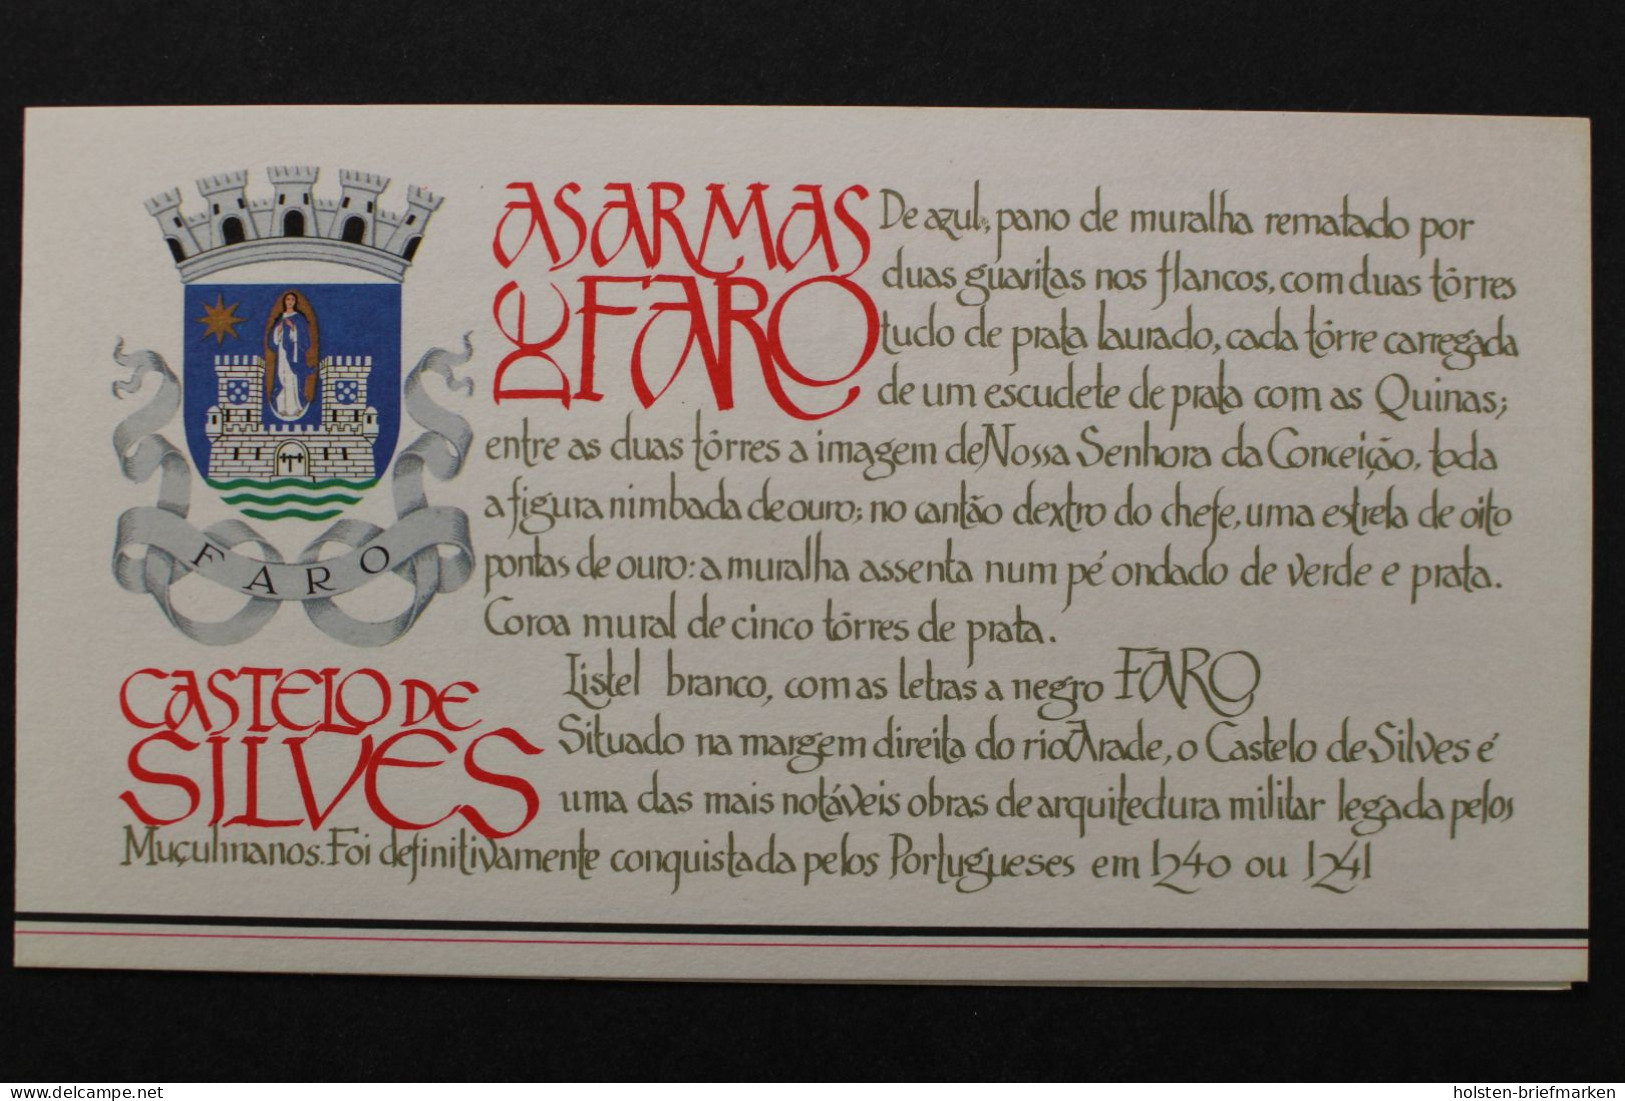 AS ARMAS
DE FARO
De azul, pano de muralha rematado por
duas guaritas nos flancos, com duas tôrres
tudo de prata laurado, cada tôrre carregada
de um escudete de prata com as Quinas;
entre as duas tôrres a imagem de Nossa Senhora da Conceição, toda
a figura nimbada de ouro; no cantão dextro do chefe, uma estrela de oito
pontas de ouro: a muralha assenta num pé ondado de verde e prata.
Coroa mural de cinco tôrres de prata.
Listel branco, com as letras a negro FARO
FARO
CASTELO DE
SILVES
Situado na margem direita do rio Arade, o Castelo de Silves é
uma das mais notáveis obras de arquitectura militar legada pelos
Muçulmanos. Foi definitivamente conquistada pelos Portugueses em 1240 ou 1241
delcampe.net
holsten-briefmarken